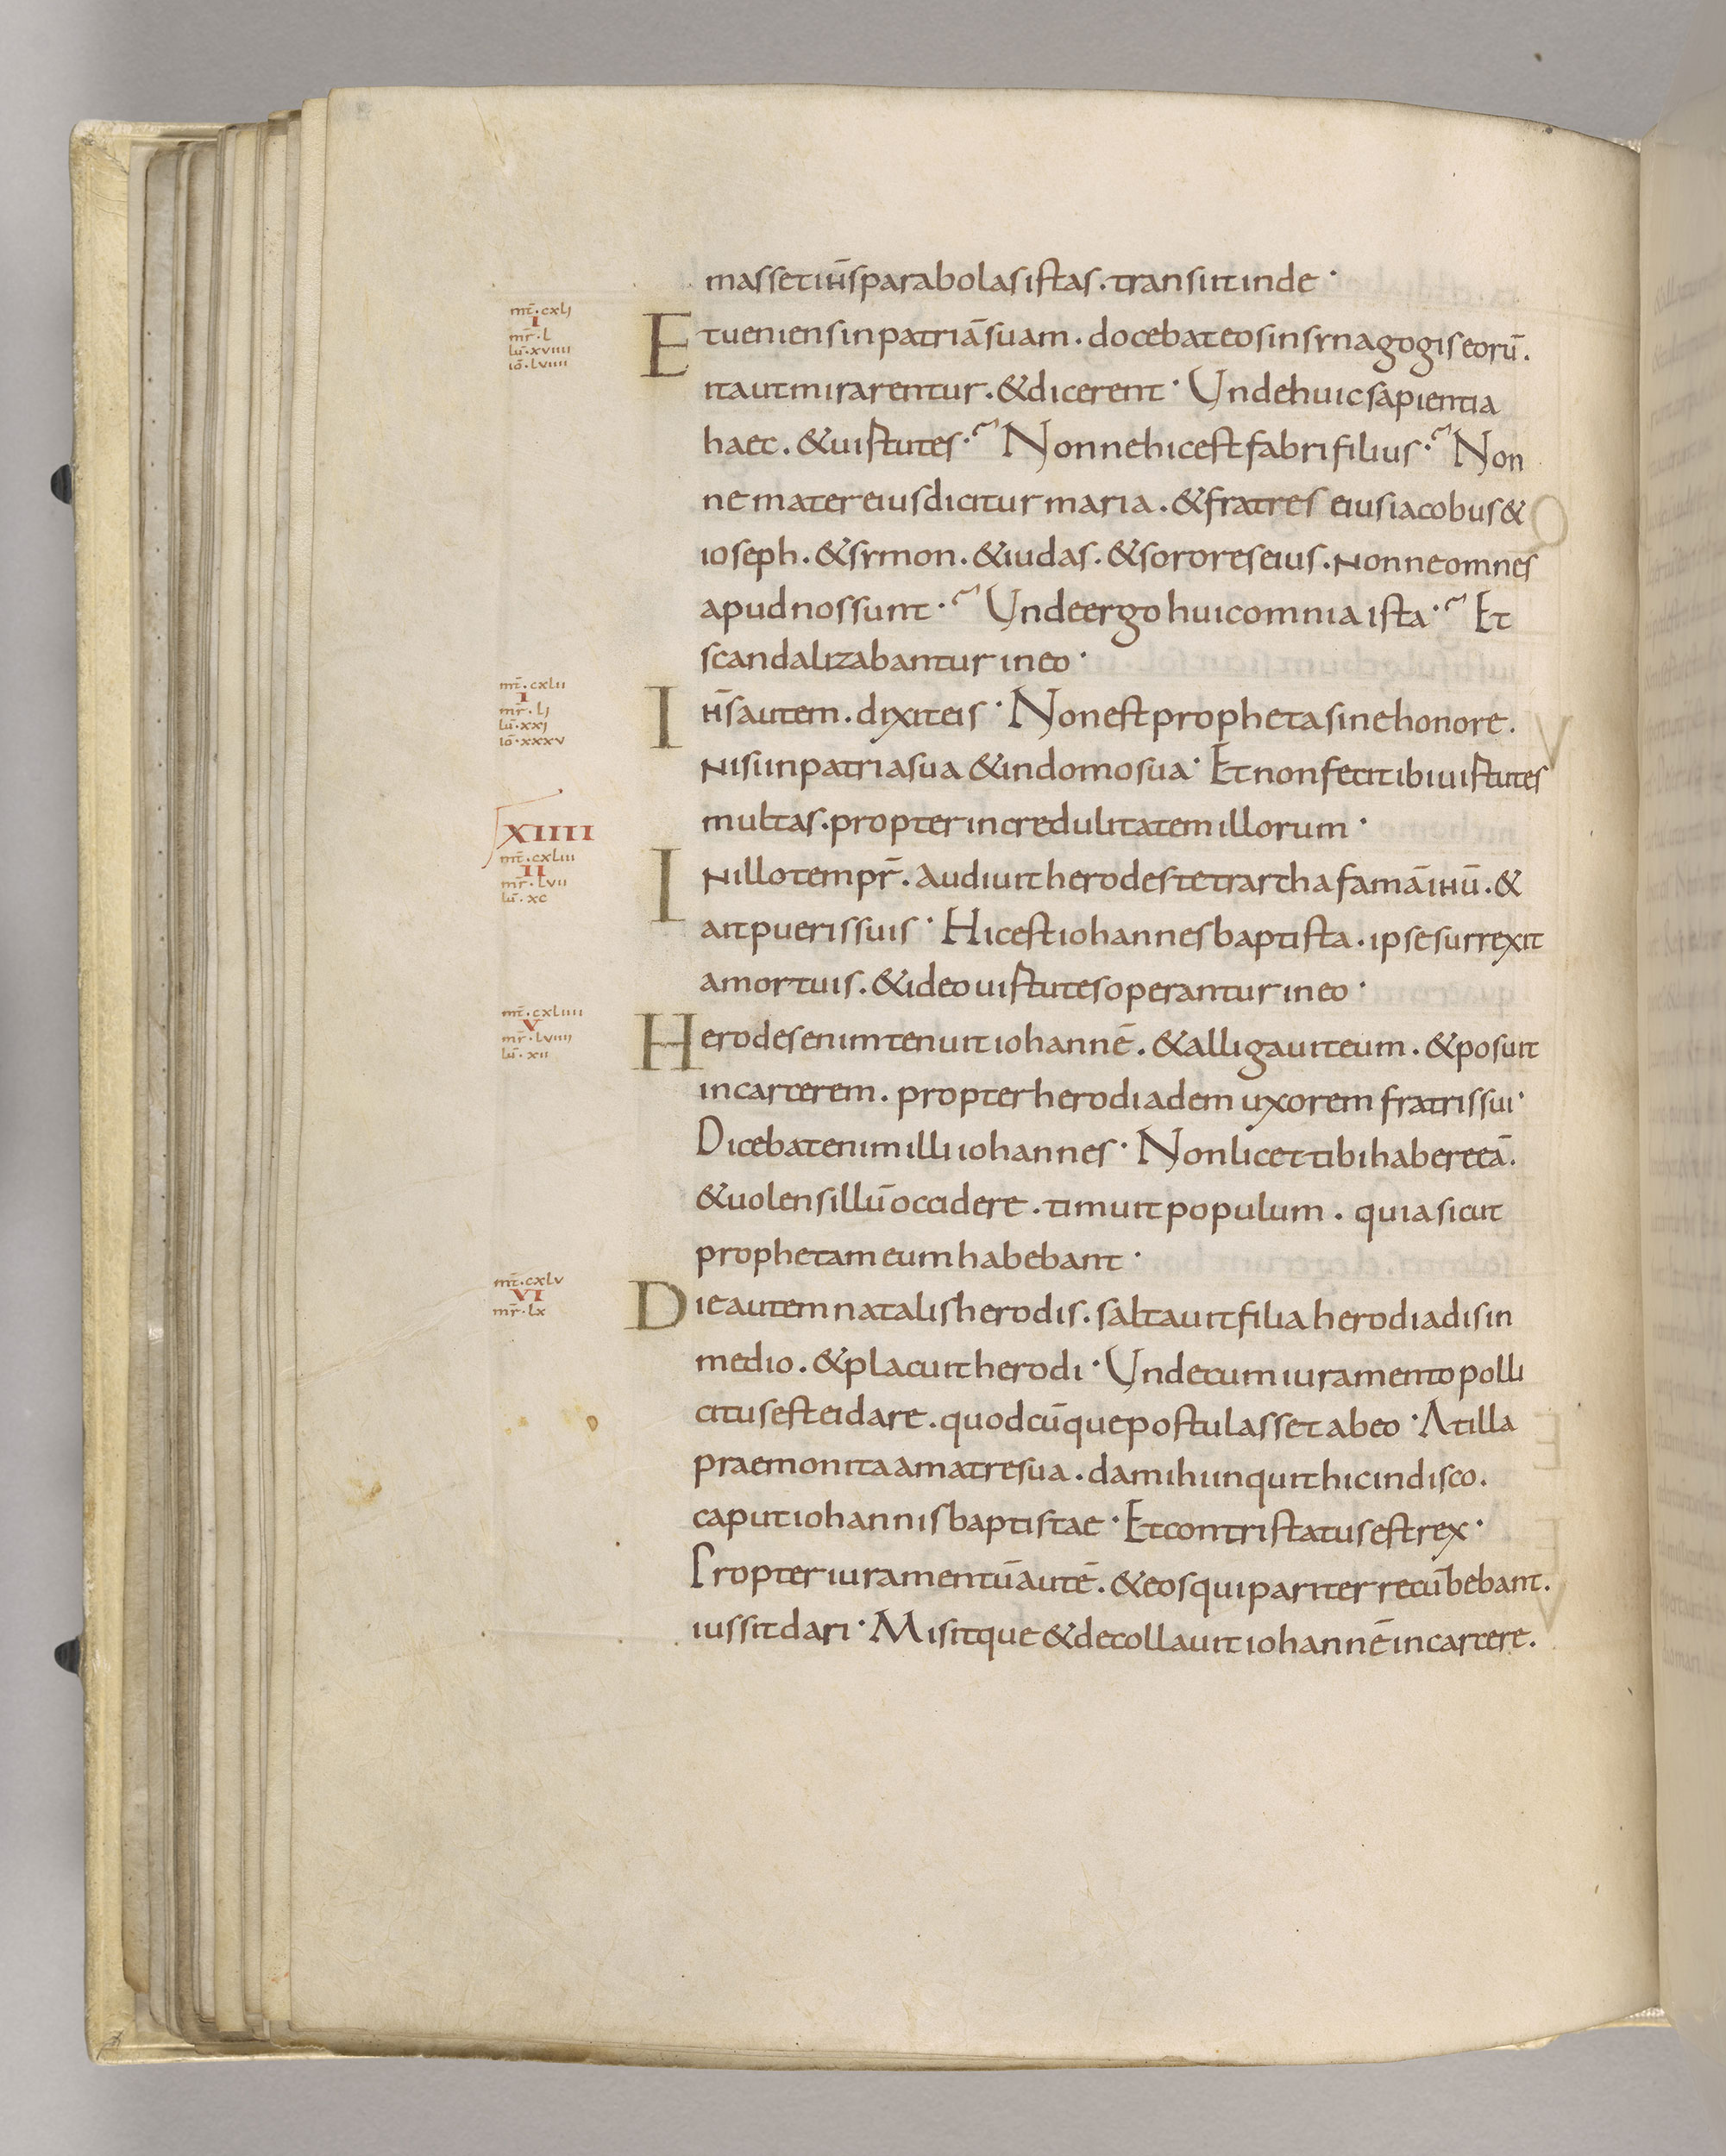 massetih̄sparabolasistas. transiit inde·
mt̄. cxlj
I
mr̄. l
lū. xviiii
iō. lviiii
Et ueniens in patriā suam. docebat eos in synagogis eorū.
ita ut mirarentur. & dicerent· Unde huic sapientia
haec. & uirtutes·? Nonne hic est fabri filius·? Non
ne mater eius dicitur maria. & fratres eius iacobus &
ioseph. & symon. & iudas. & sorores eius. nonne omnes
apud nos sunt·? Unde ergo huic omnia ista·? Et
scandalizabantur in eo·
mt̄. cxlii
I
mr̄. lj
lū. xxj
iō. xxxv
Ih̄s autem. dixit eis· Non est propheta sine honore.
nisi in patria sua & in domo sua· Et non fecit ibi uirtutes
multas. propter incredulitatem illorum·
XIIII
mt̄. cxliii
II
mr̄. lvii
lū. xc
In illo tempr̄. audiuit herodes tetrarcha famā ihū. &
ait pueris suis· Hic est iohannes baptista. ipse surrexit
a mortuis. & ideo uirtutes operantur in eo·
mt̄. cxliiii
V
mr̄. lviiii
lū. xii
Herodes enim tenuit iohannē. & alligauit eum. & posuit
in carcerem. propter herodiadem uxorem fratris sui·
Dicebat enim illi iohannes· Non licet tibi habere eā.
& uolens illū occidere. timuit populum. quia sicut
prophetam eum habebant·
mt̄. cxlv
VI
mr̄. lx
Die autem natalis herodis. saltauit filia herodiadis in
medio. & placuit herodi· Unde cum iuramento polli
citus est ei dare. quodcūque postulasset ab eo· At illa
praemonita a matre sua. da mihi inquit hic in disco.
caput iohannis baptistae· Et contristatus est rex·
Propter iuramentū autē. & eos qui pariter recūbebant.
iussit dari· Misitque & decollauit iohannē in carcere.